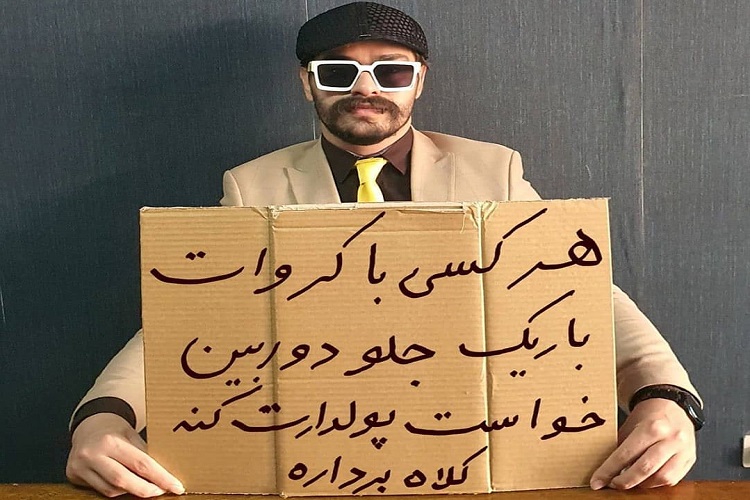 هر کسی با کروات
باریک جلو دوربین
خواست پولدارت کنه
کلاه برداره